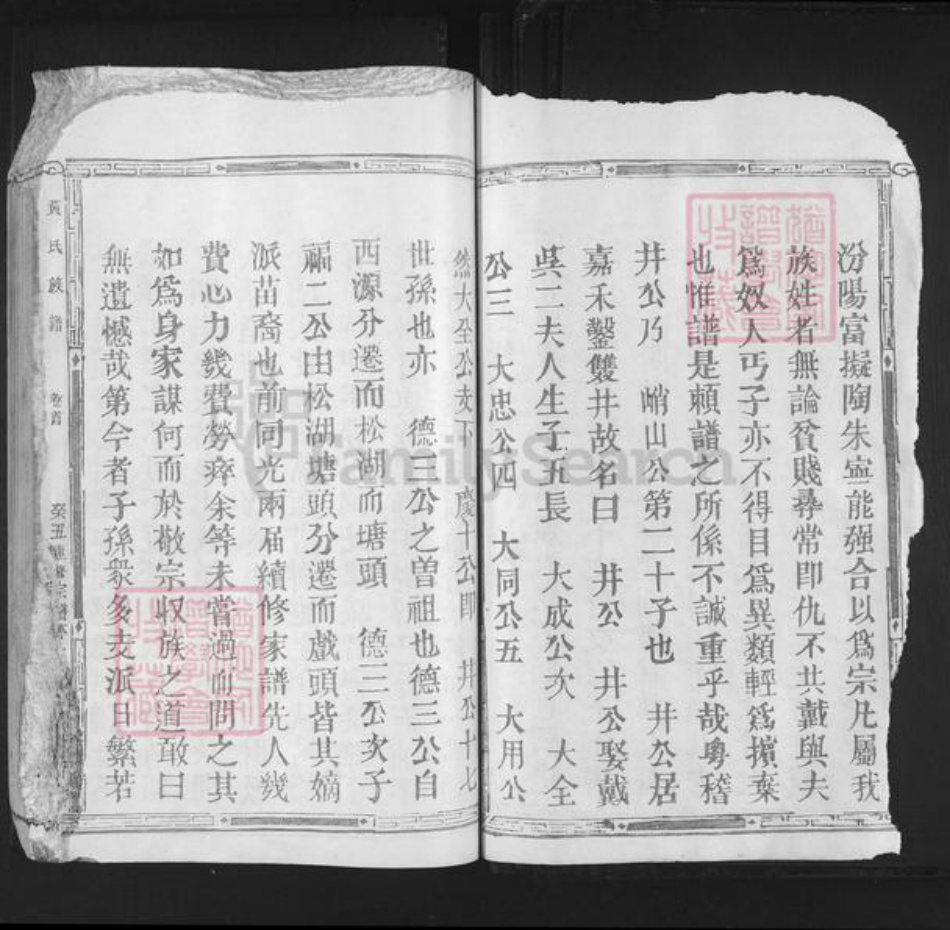 汾陽富擬陶朱寗能强合以爲宗凡屬我
族姓者無論貧賤尋常即仇不共戴與夫
爲奴人丐子亦不得目爲異類輕爲擯棄
也惟譜是賴譜之所係不誠重乎哉粤稽
井公乃 峭山公第二十子也 井公居
嘉禾鑿雙井故名曰 井公 井公娶戴
吳二夫人生子五長 大成公次 大全
公三 大忠公四 大同公五 大用公
然大全公支下 慶十公即 井公十七
世孫也亦 德三公之曾祖也德三公自
西源分遷而松湖而塘頭 德三公次子
福二公由松湖塘頭分遷而戲頭皆其嫡
派苗裔也前同光兩届續修家譜先人幾
費心力幾費勞瘁余等未嘗過而問之其
如爲身家謀何而於敬宗收族之道敢曰
無遺憾哉第今者子孫衆多支派日繁若
黃氏族譜 卷首 癸丑
FamilySearch